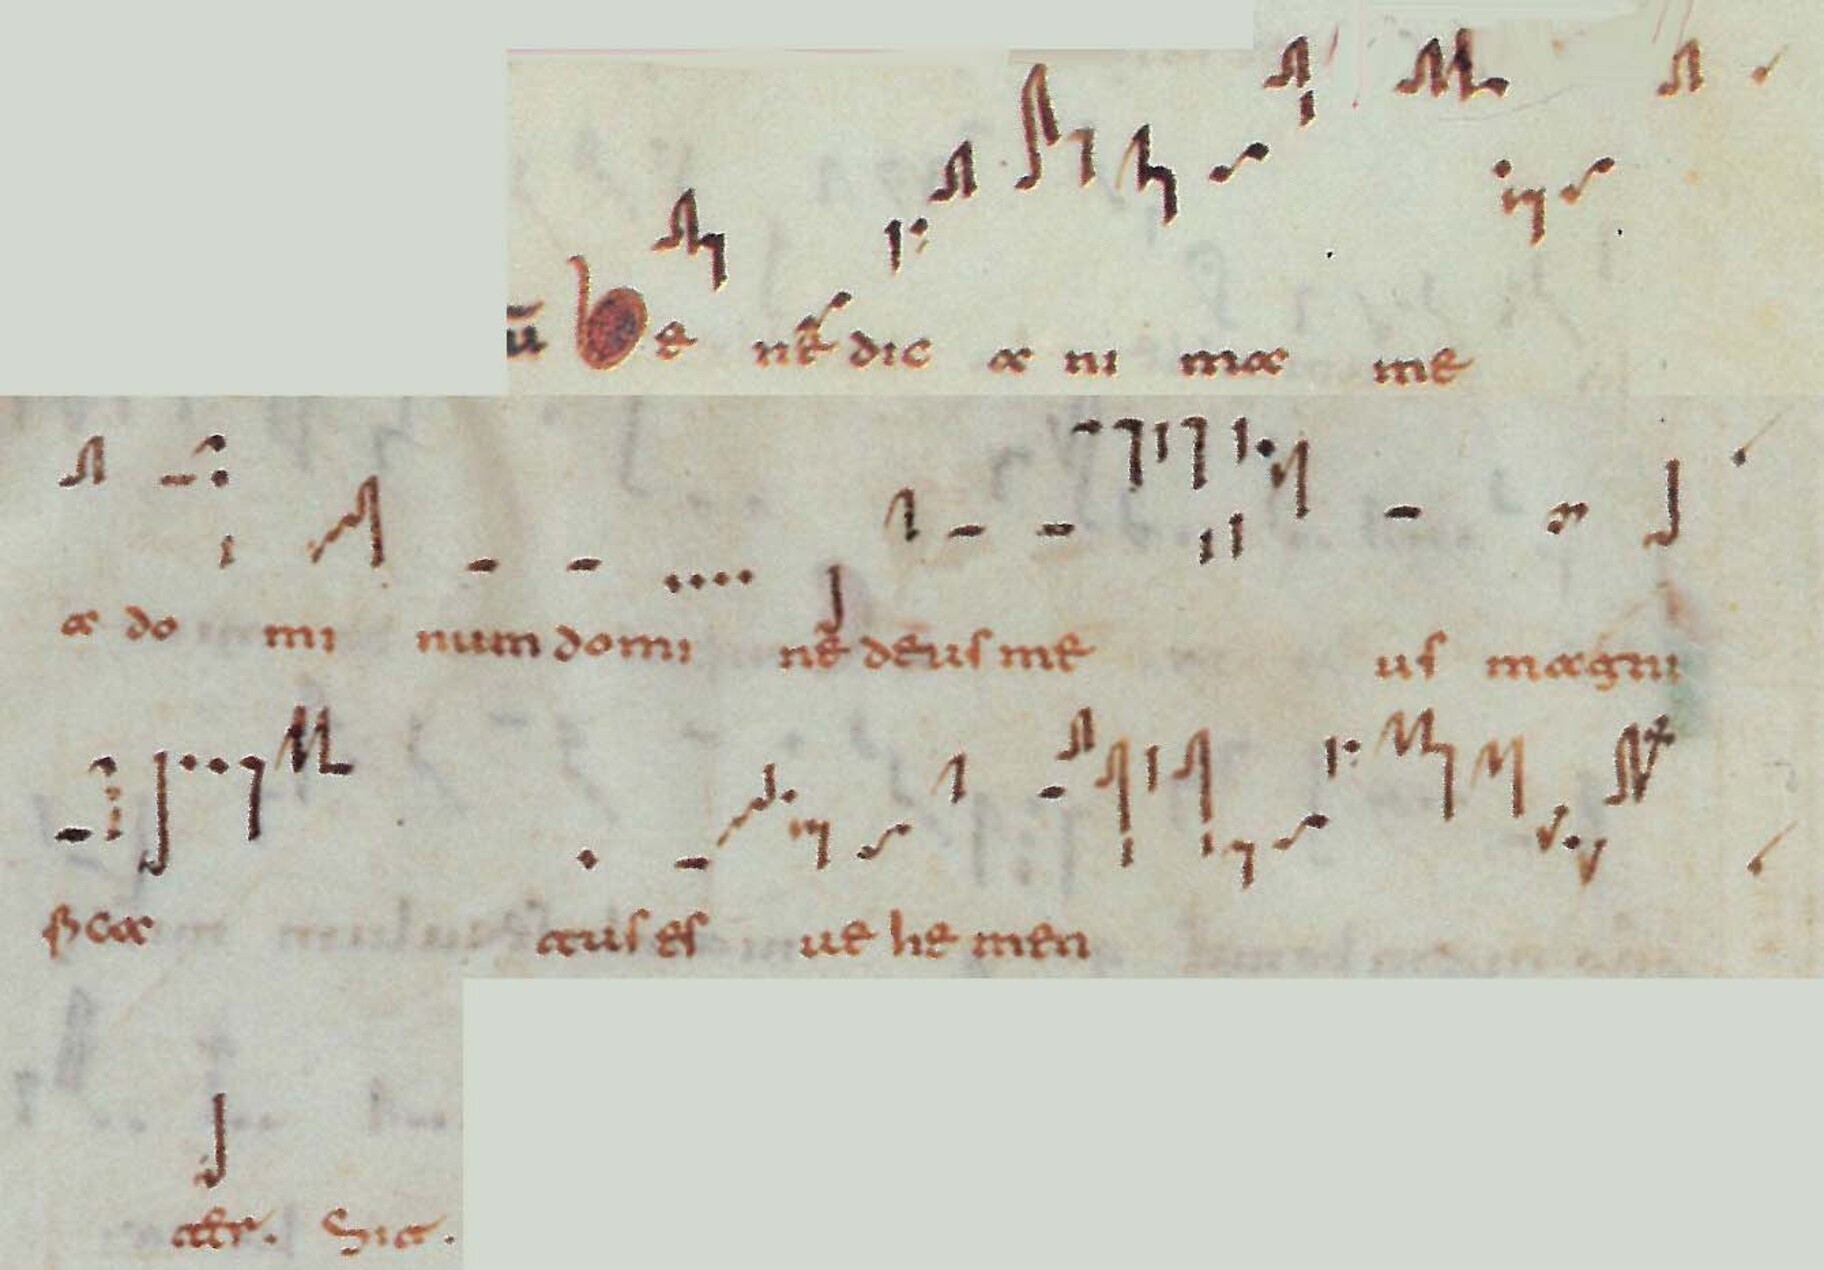 Be ne dic a ni ma me
a do mi num domi ne deus me us magni
fica tus es ue he men
ter. Sic.